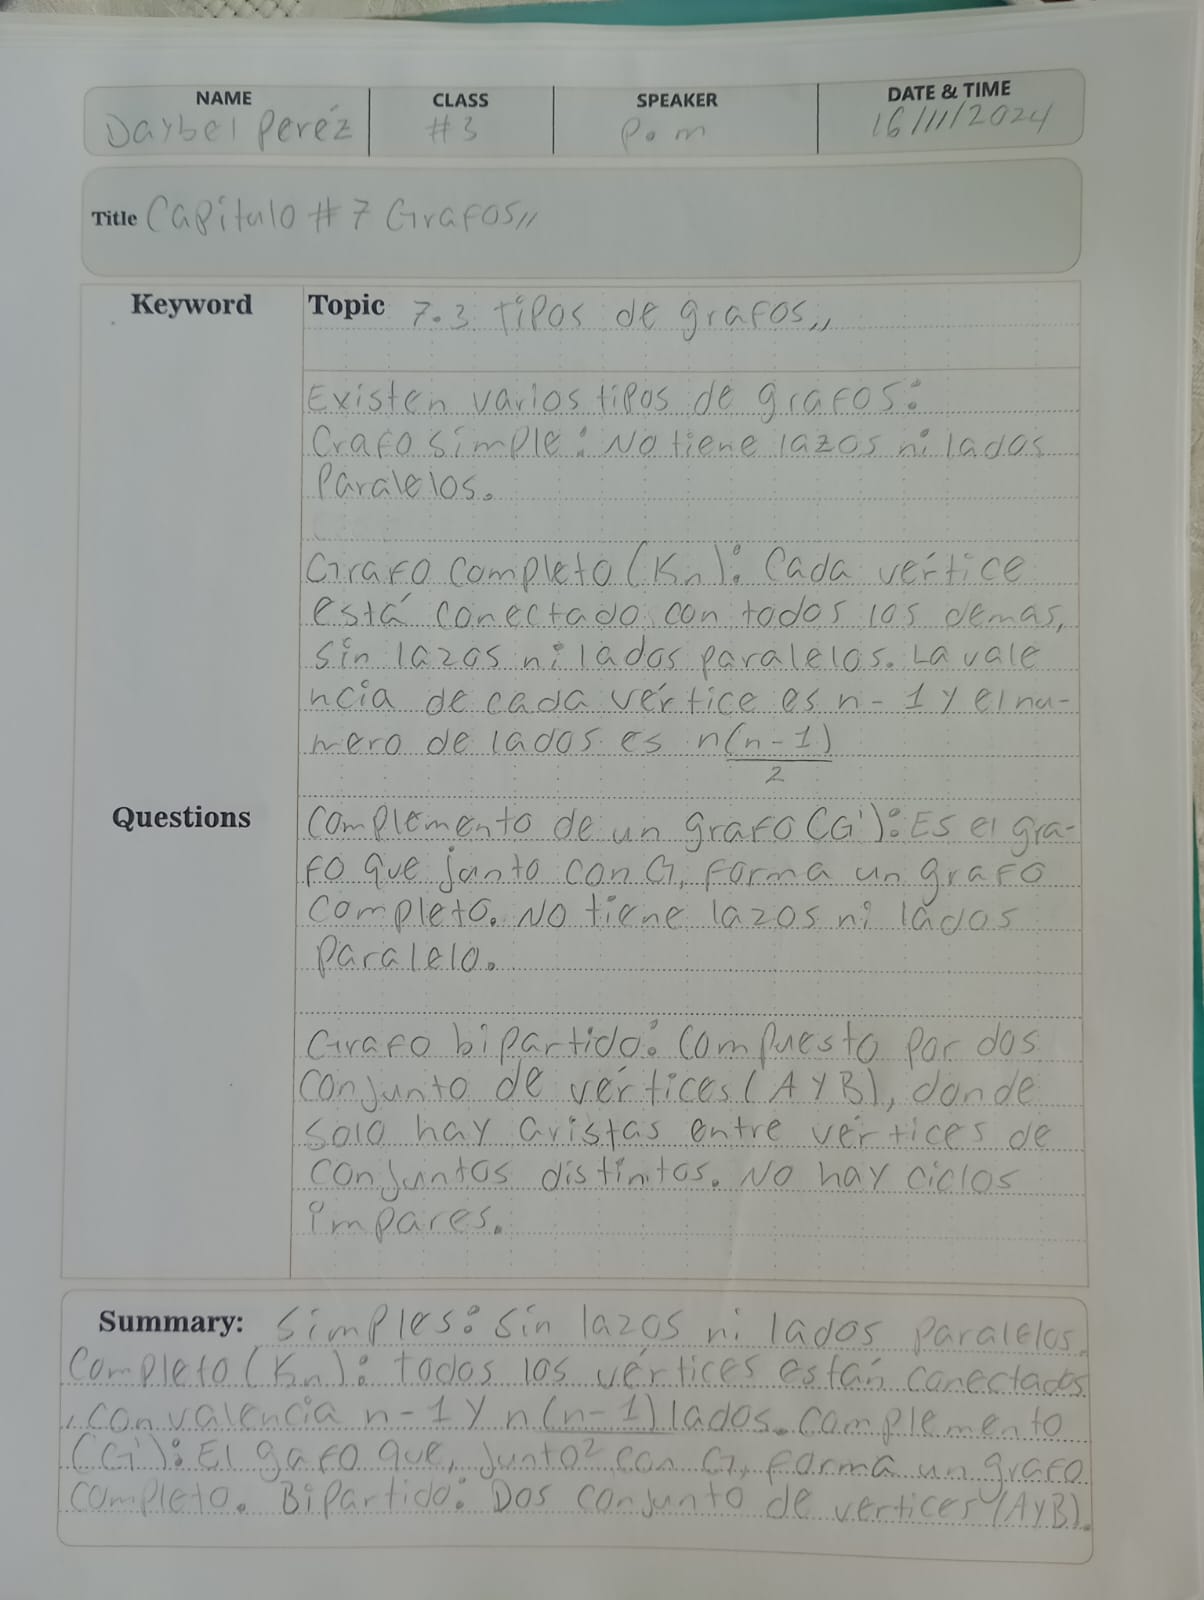 NAME CLASS SPEAKER DATE & TIME
Daybel Peréz #3 P.m 16/11/2024
Title Capítulo #7 Grafos,,
Keyword Topic 7.3 tipos de grafos,,
Existen varios tipos de grafos:
Grafo simple: No tiene lazos ni lados
Paralelos.
Grafo completo (Kn): Cada vértice
está conectado con todos los demas,
sin lazos ni lados paralelos. La vale
ncia de cada vértice es n-1 y el nu-
mero de lados es n(n-1)
2
Questions Complemento de un grafo (G'): Es el gra-
fo que junto con G, forma un grafo
completo. No tiene lazos ni lados
Paralelo.
Grafo bipartido: Compuesto por dos
conjunto de vértices (A y B), donde
solo hay aristas entre vértices de
conjuntos distintos. No hay ciclos
impares.
Summary: Simples: sin lazos ni lados paralelos.
Completo (Kn): todos los vértices están conectados
, con valencia n-1 y n(n-1) lados. complemento
2
(G'): El gafo que, junto con G, forma un grafo
completo. Bipartido: Dos conjunto de vertices (A y B).